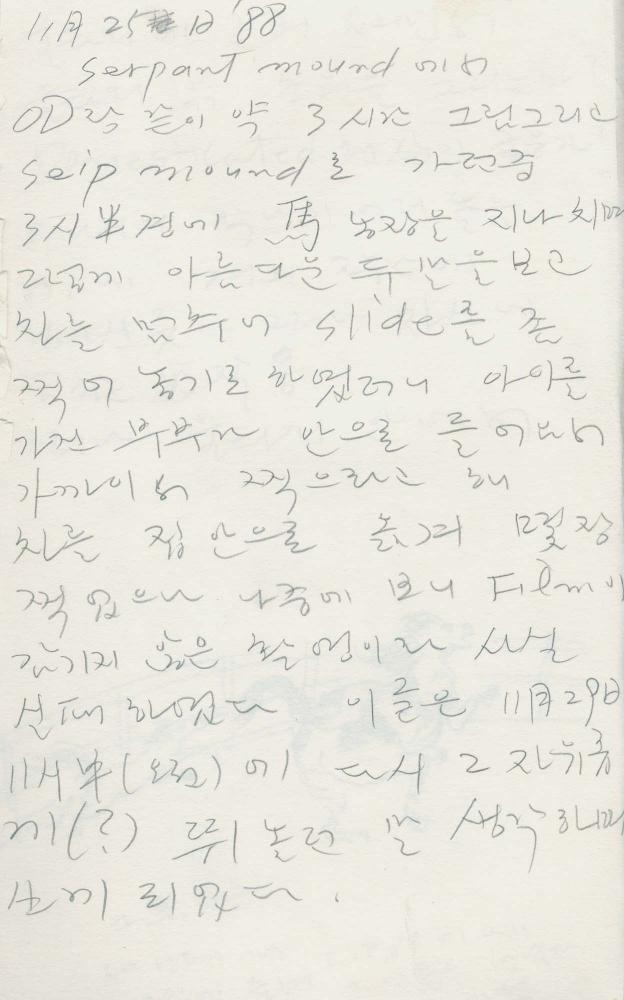 11月 25 日 '88
serpant mound 에서
OD랑 같이 약 3시간 그림그리고
seip mound로 가던중
3시半경에 馬 농장을 지나치며
그렇게 아름다운 두 말을 보고
차를 멈추어 slide를 좀
찍어 놓기로 하였더니 아이를
가진 부부가 안으로 들어와서
가까이서 찍으라고 해
차를 집안으로 옮겨 몇장
찍었으나 나중에 보니 Film이
감기지 않은 촬영이라 사실
실패하였다 이들은 11月29日
11시半(오전)에 다시 그
께(?) 뛰놀던 말 생각하며
리었다.